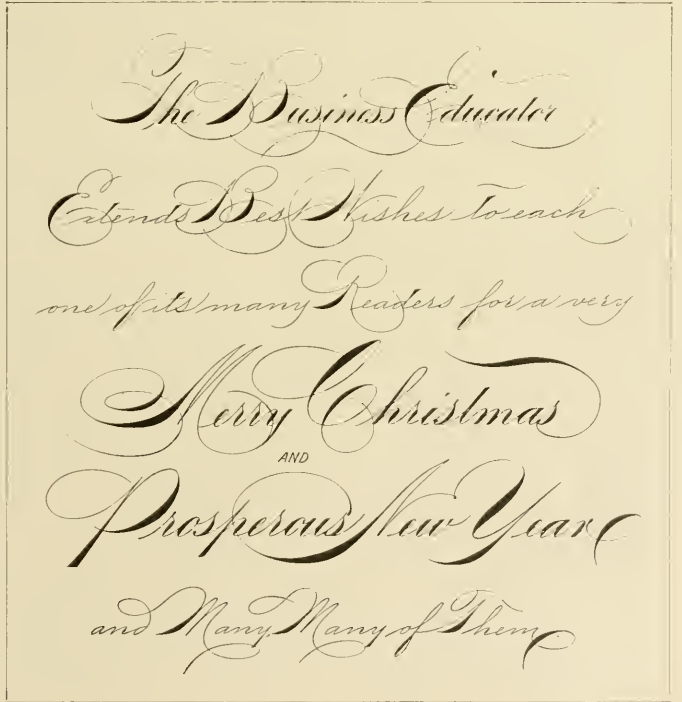 The Business Educator
Extends Best Wishes to each
one of its many Readers for a very
Merry Christmas
AND
Prosperous New Year
and Many, Many of Them